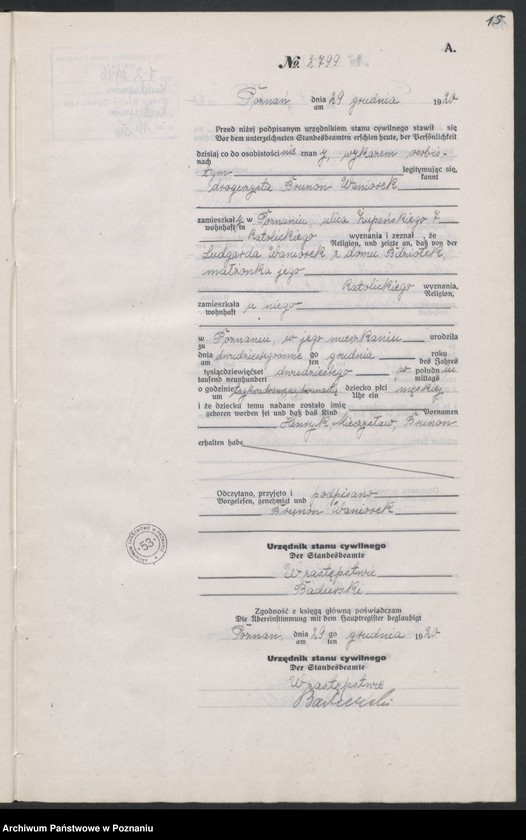 15
A.
No. 2799
Poznań, dnia 29 grudnia 1920
am
Przed niżej podpisanym urzędnikiem stanu cywilnego stawił się
Vor dem unterzeichneten Standesbeamten erschien heute, der Persönlichkeit
dzisiaj co do osobistości nie znany, wykazem osobis-
nach
tym legitymując się,
kannt
drogerzysta Brunon Waniorek
zamieszkały w Poznaniu, ulica Żupańskiego 7
wohnhaft in
katolickiego wyznania i zeznał, że
Religion, und zeigte an, daß von der
Ludgarda Waniorek z domu
małżonka jego
katolickiego wyznania,
Religion,
zamieszkała u niego
wohnhaft
w Poznaniu, w jego mieszkaniu urodziła
zu
dnia go grudnia roku
am ten des Jahres
tysiącdziewięćset dwudziestego po połudn iu
tausend neunhundert mittags
o godzinie dziecka płci męskiej
um Uhr ein
i że dziecku temu nadane zostało imię
geboren worden sei und daß das Kind Vornamen
Henryk, Mieczysław, Brunon
erhalten habe
Odczytano, przyjęto i podpisano
Vorgelesen, genehmigt und
Brunon Waniorek
ARCHIWUM PAŃSTWOWE W POZNANIU
53
Urzędnik stanu cywilnego
Der Standesbeamte
W zastępstwie
Zgodność z księgą główną poświadczam
Die Übereinstimmung mit dem Hauptregister beglaubigt
Poznan, dnia 29 go grudnia 1920
am ten
Urzędnik stanu cywilnego
Der Standesbeamte
W zastępstwie
Archiwum Państwowe w Poznaniu